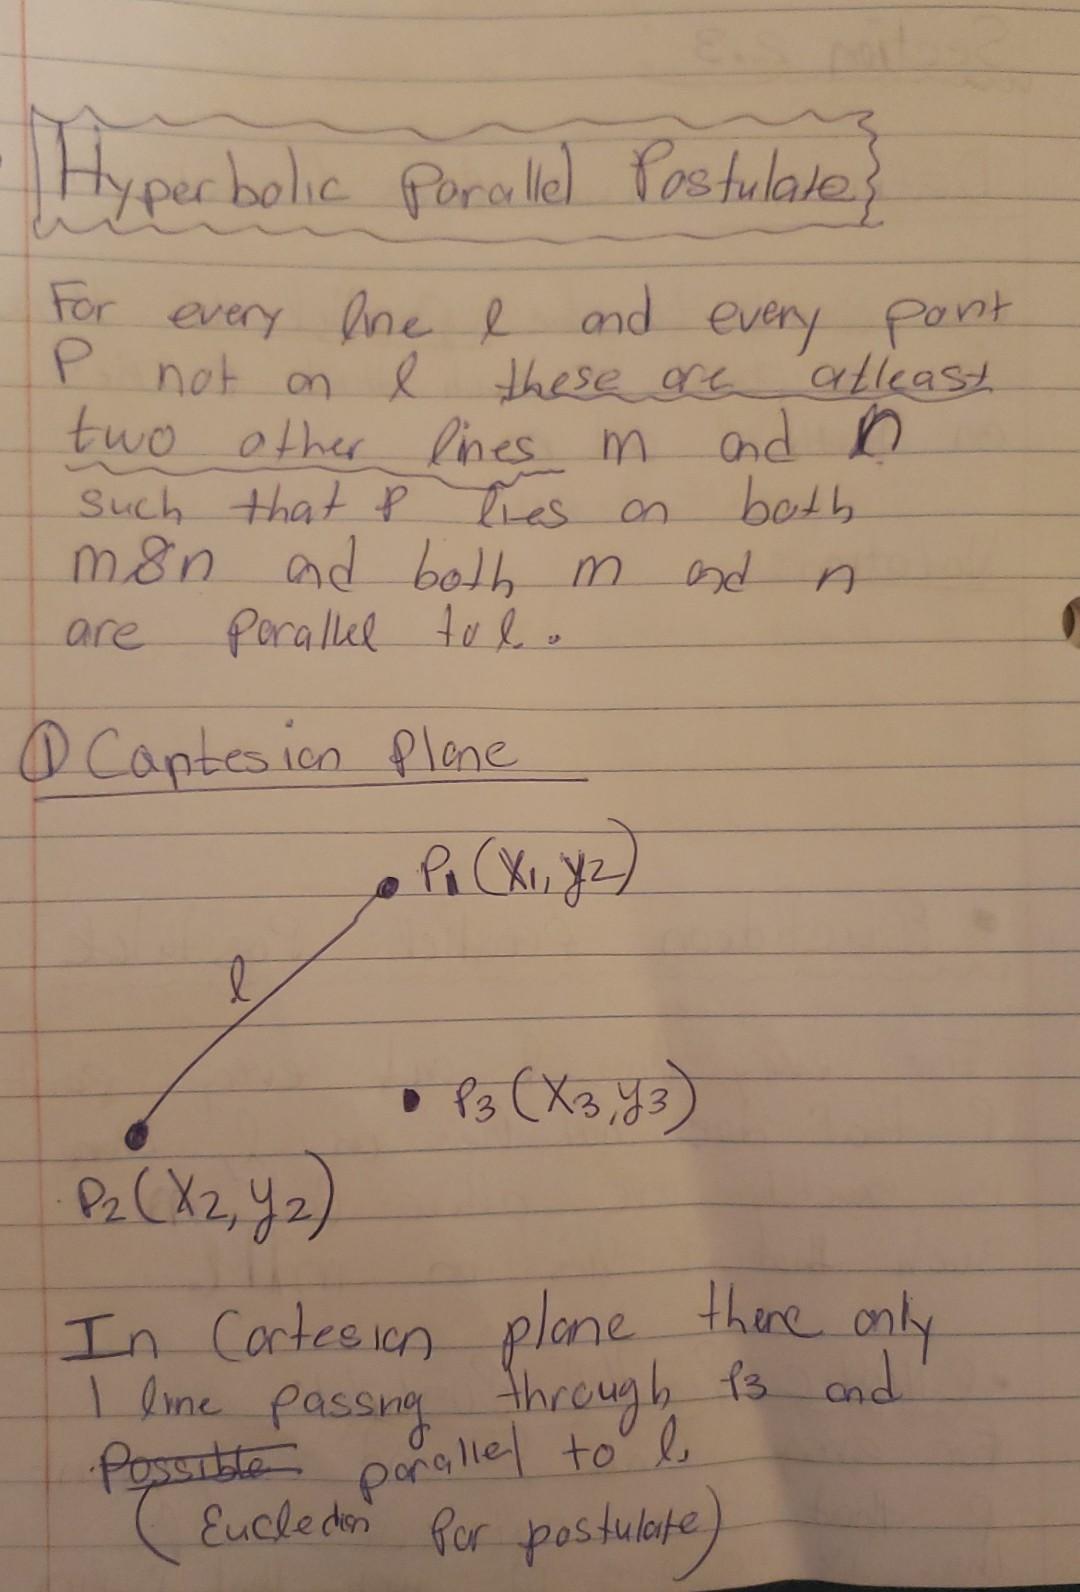 Hyperbolic Parallel Postulate
For every line l and every point
P not on l these are atleast
two other lines m and n
such that P lies on both
m&n and both m and n
are parallel to l.
① Cartesian Plane
P1 (X1, y2)
l
P3 (X3, y3)
P2 (X2, y2)
In Cartesian plane there only
1 line passing through P3 and
Possible parallel to l.
(Eucledian Par postulate)